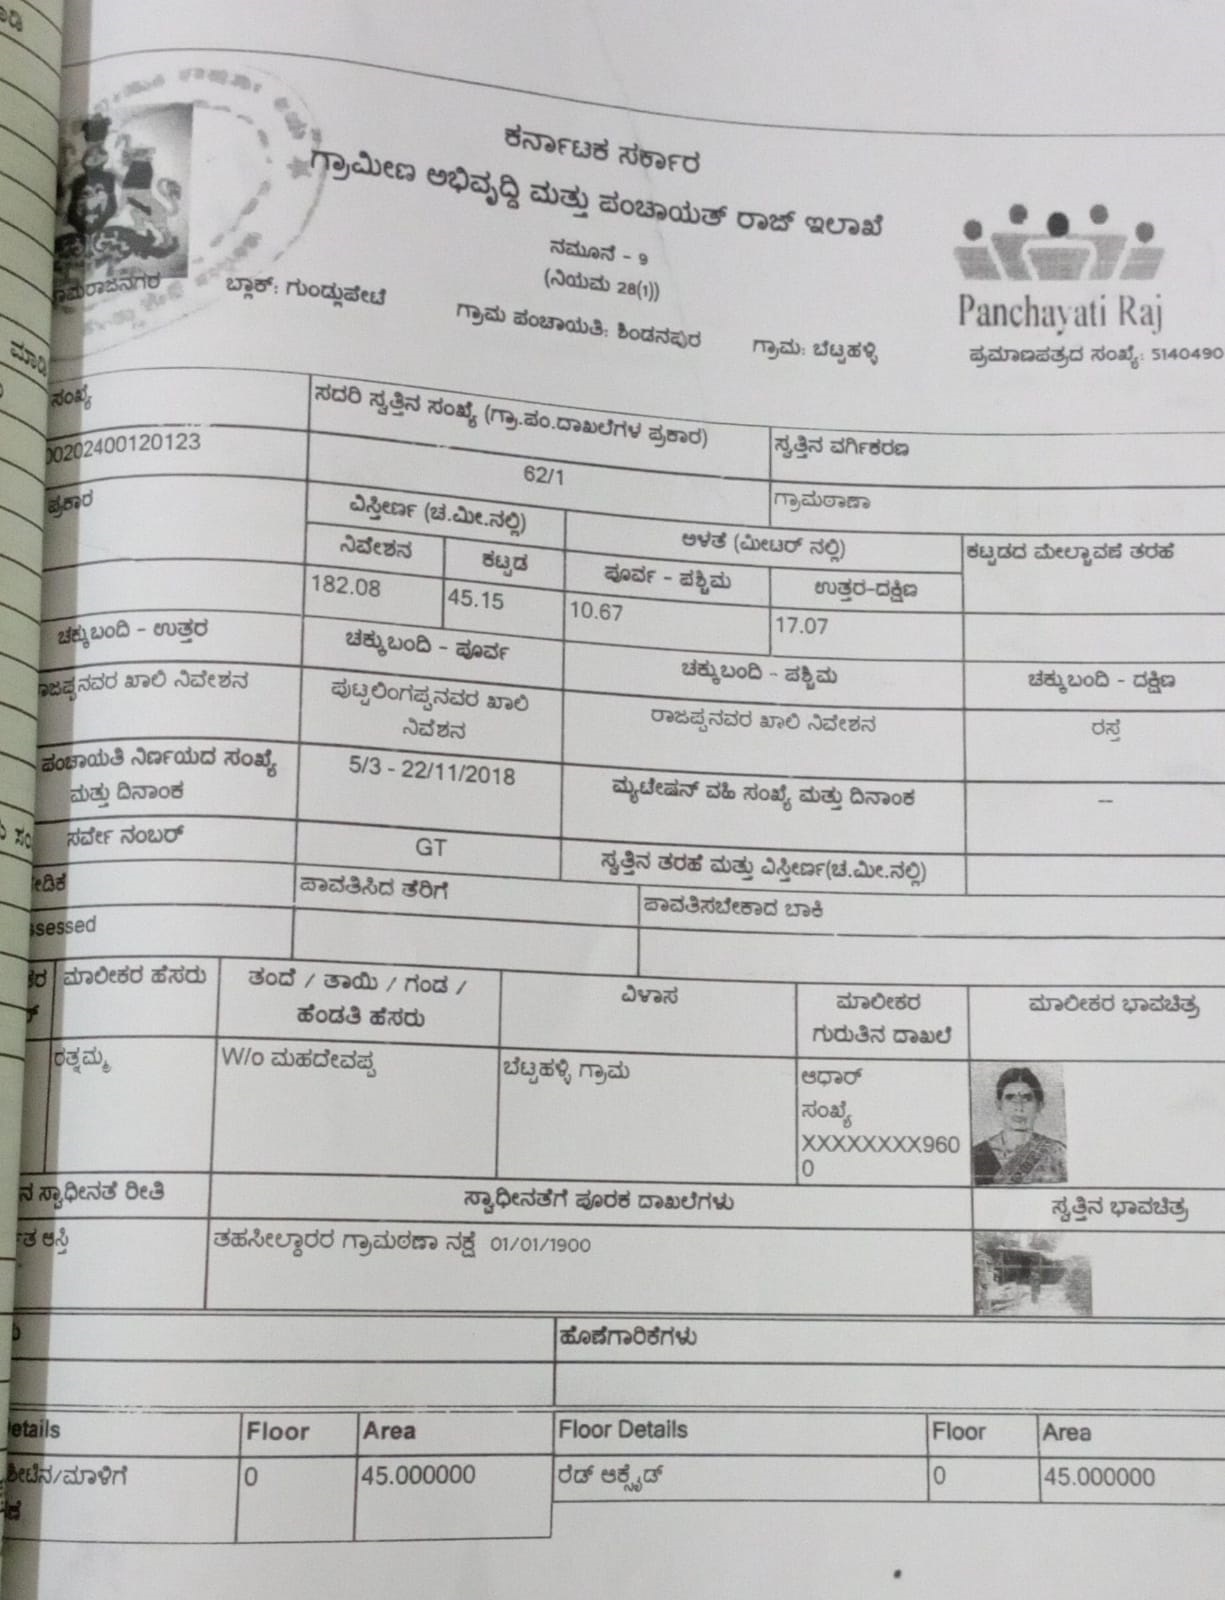 ಕರ್ನಾಟಕ ಸರ್ಕಾರ
ಗ್ರಾಮೀಣ ಅಭಿವೃದ್ಧಿ ಮತ್ತು ಪಂಚಾಯತ್ ರಾಜ್ ಇಲಾಖೆ
ನಮೂನೆ - 9
(ನಿಯಮ 28(1))
Panchayati Raj
ಬ್ಲಾಕ್: ಗುಂಡ್ಲುಪೇಟೆ ಗ್ರಾಮ ಪಂಚಾಯತಿ: ಶಿಂಡನಪುರ ಗ್ರಾಮ: ಬೆಟ್ಟಹಳ್ಳಿ ಪ್ರಮಾಣಪತ್ರದ ಸಂಖ್ಯೆ: 5140490
ಸಂಖ್ಯೆ ಸದರಿ ಸ್ವತ್ತಿನ ಸಂಖ್ಯೆ (ಗ್ರಾ.ಪಂ.ದಾಖಲೆಗಳ ಪ್ರಕಾರ) ಸ್ವತ್ತಿನ ವರ್ಗಿಕರಣ
00202400120123 62/1 ಗ್ರಾಮಠಾಣಾ
ಪ್ರಕಾರ ವಿಸ್ತೀರ್ಣ (ಚ.ಮೀ.ನಲ್ಲಿ) ಅಳತೆ (ಮೀಟರ್ ನಲ್ಲಿ) ಕಟ್ಟಡದ ಮೇಲ್ಚಾವಣಿ ತರಹೆ
ನಿವೇಶನ ಕಟ್ಟಡ ಪೂರ್ವ - ಪಶ್ಚಿಮ ಉತ್ತರ-ದಕ್ಷಿಣ
182.08 45.15 10.67 17.07
ಚಕ್ಕುಬಂದಿ - ಉತ್ತರ ಚಕ್ಕುಬಂದಿ - ಪೂರ್ವ ಚಕ್ಕುಬಂದಿ - ಪಶ್ಚಿಮ ಚಕ್ಕುಬಂದಿ - ದಕ್ಷಿಣ
ಖಾಲಿ ನಿವೇಶನ ಪುಟ್ಟಲಿಂಗಪ್ಪನವರ ಖಾಲಿ ರಾಜಪ್ಪನವರ ಖಾಲಿ ನಿವೇಶನ ರಸ್ತೆ
ನಿವೆಶನ
ಪಂಚಾಯತಿ ನಿರ್ಣಯದ ಸಂಖ್ಯೆ 5/3 - 22/11/2018 ಮ್ಯುಟೇಷನ್ ವಹಿ ಸಂಖ್ಯೆ ಮತ್ತು ದಿನಾಂಕ --
ಮತ್ತು ದಿನಾಂಕ
ಸರ್ವೇ ನಂಬರ್ GT ಸ್ವತ್ತಿನ ತರಹೆ ಮತ್ತು ವಿಸ್ತೀರ್ಣ(ಚ.ಮೀ.ನಲ್ಲಿ)
ಪಾವತಿಸಿದ ತೆರಿಗೆ ಪಾವತಿಸಬೇಕಾದ ಬಾಕಿ
ssessed
ಮಾಲೀಕರ ಹೆಸರು ತಂದೆ / ತಾಯಿ / ಗಂಡ / ವಿಳಾಸ ಮಾಲೀಕರ ಮಾಲೀಕರ ಭಾವಚಿತ್ರ
ಹೆಂಡತಿ ಹೆಸರು ಗುರುತಿನ ದಾಖಲೆ
ರತ್ನಮ್ಮ W/o ಮಹದೇವಪ್ಪ ಬೆಟ್ಟಹಳ್ಳಿ ಗ್ರಾಮ ಆಧಾರ್
ಸಂಖ್ಯೆ
XXXXXXXX960
0
ನ ಸ್ವಾಧೀನತೆ ರೀತಿ ಸ್ವಾಧೀನತೆಗೆ ಪೂರಕ ದಾಖಲೆಗಳು ಸ್ವತ್ತಿನ ಭಾವಚಿತ್ರ
ಆಸ್ತಿ ತಹಸೀಲ್ದಾರರ ಗ್ರಾಮಠಣಾ ನಕ್ಷೆ 01/01/1900
ಹೊಣೆಗಾರಿಕೆಗಳು
etails Floor Area Floor Details Floor Area
ಶೀಟಿನ/ಮಾಳಿಗೆ 0 45.000000 ರೆಡ್ ಆಕ್ಸೈಡ್ 0 45.000000